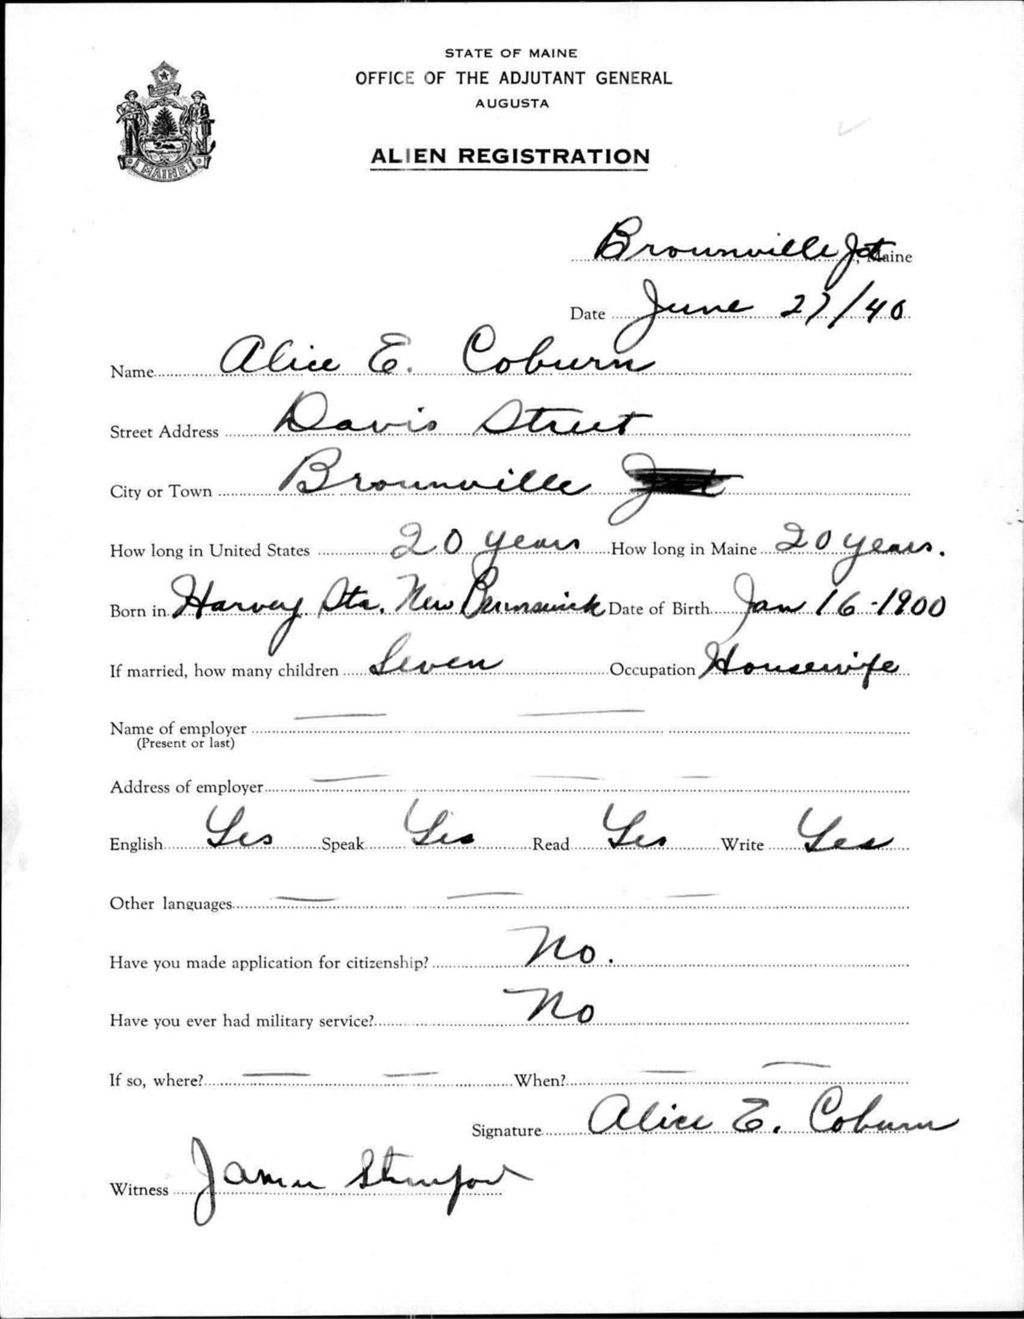 STATE OF MAINE
OFFICE OF THE ADJUTANT GENERAL
AUGUSTA
ALIEN REGISTRATION
MAINE
Brownville Jct, Maine
Date June 27/40
Name Alice E. Coburn
Street Address Davis Street
City or Town Brownville
How long in United States 20 years How long in Maine 20 years.
Born in Harvey Sta. New Brunswick Date of Birth Jan 16-1900
If married, how many children Seven Occupation Housewife
Name of employer
(Present or last)
Address of employer
English Yes Speak Yes Read Yes Write Yes
Other languages
Have you made application for citizenship? No.
Have you ever had military service? No
If so, where? When?
Signature Alice E. Coburn
Witness